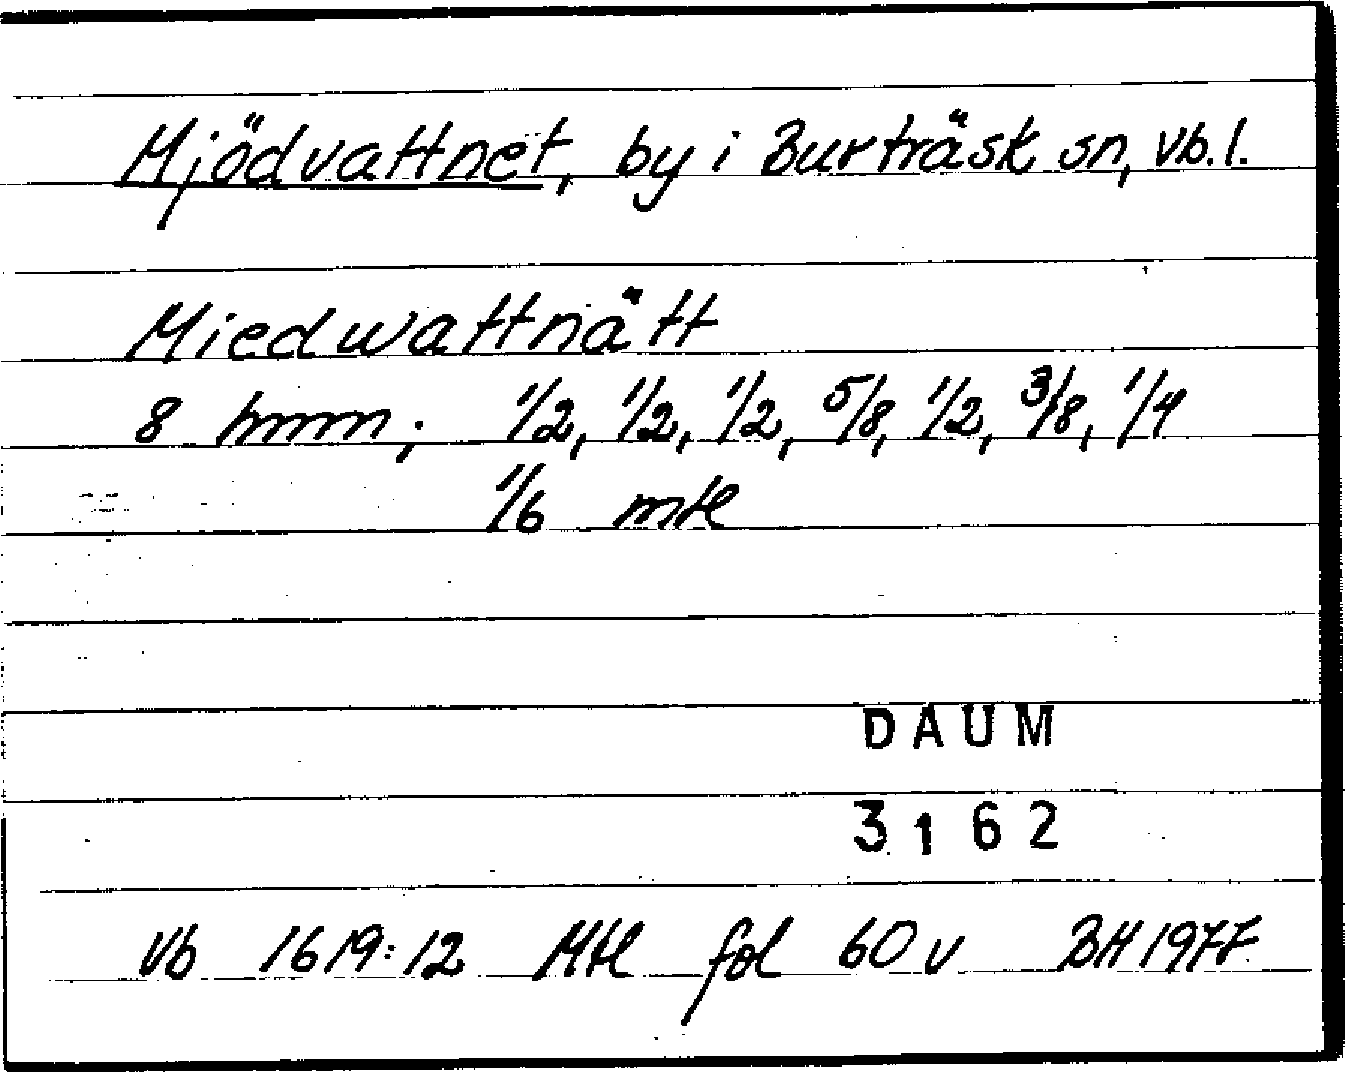 Mjödvattnet, by i Burträsk sn, Vb. l.
Miedwattnätt
8 hmm; 1/2, 1/2, 1/2, 5/8, 1/2, 3/8, 1/4
1/6 mtl
DAUM
3162
Vb 1619:12 Mtl fol 60 v BH 1977